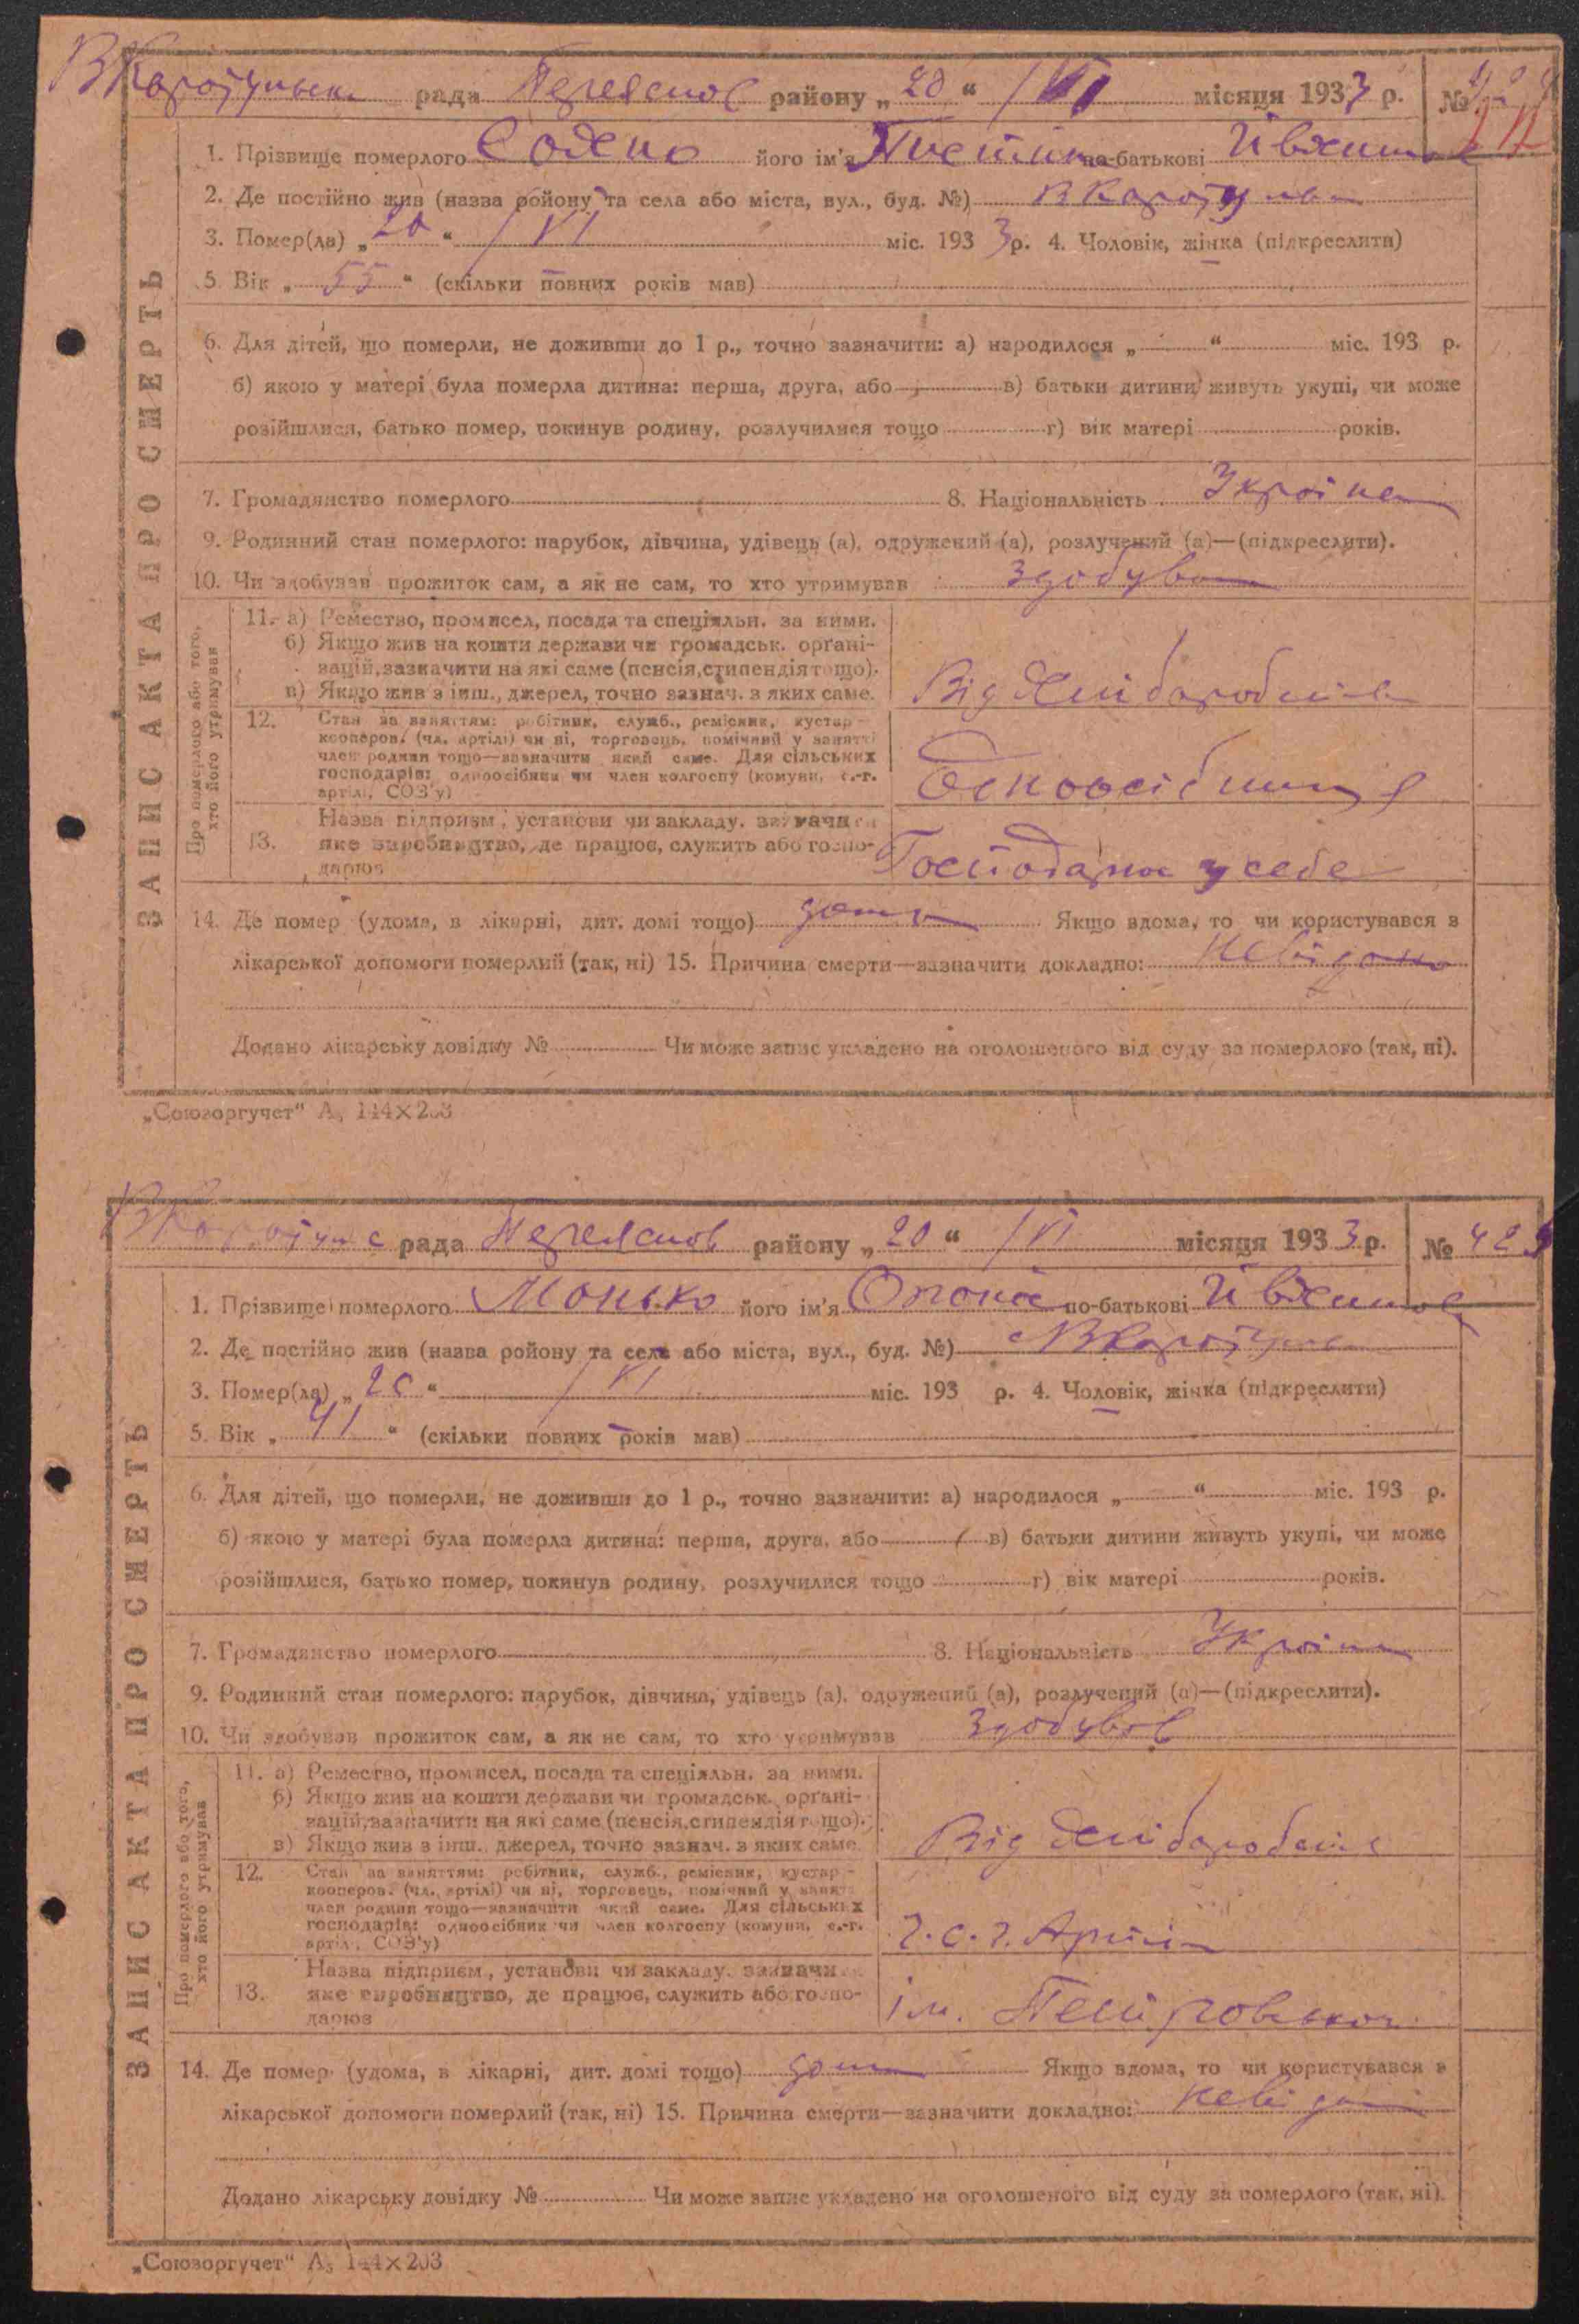 рада Переяслов району „20“ /VI місяця 1933 р. №
1. Прізвище померлого його ім'я по-батькові
2. Де постійно жив (назва ройону та села або міста, вул., буд. №) В Каратуль
3. Помер(ла) „20“ /VI міс. 1933 р. 4. Чоловік, жінка (підкреслити)
5. Вік „55“ (скільки повних років мав)
6. Для дітей, що померли, не доживши до 1 р., точно зазначити: а) народилося „ “ міс. 193 р.
б) якою у матері була померла дитина: перша, друга, або в) батьки дитини живуть укупі, чи може
розійшлися, батько помер, покинув родину, розлучилися тощо г) вік матері років.
7. Громадянство померлого 8. Національність Україна
9. Родинний стан померлого: парубок, дівчина, удівець (а), одружений (а), розлучений (а)—(підкреслити).
10. Чи здобував прожиток сам, а як не сам, то хто утримував здобува
ЗАПИС АКТА ПРО СМЕРТЬ
Про померлого або того,
хто його утримував
11. а) Ремество, промисел, посада та спеціяльн. за ними.
б) Якщо жив на кошти держави чи громадськ. орґані-
зацій, зазначити на які саме (пенсія, стипендія тощо).
в) Якщо жив з інш., джерел, точно зазнач. з яких саме.
Від
12. Стан за заняттям: робітник, служб., ремісник, кустар-
кооперов. (чл. артілі) чи ні, торговець, помічний у занятті
член родини тощо—зазначити який саме. Для сільських
господарів: одноосібник чи член колгоспу (комуни, с.-г.
артілі, СОЗ'у)
13. Назва підприєм., установи чи закладу. зазначити
яке виробництво, де працює, служить або госпо-
дарює
у себе
14. Де помер (удома, в лікарні, дит. домі тощо) дома Якщо вдома, то чи користувався з
лікарської допомоги померлий (так, ні) 15. Причина смерти—зазначити докладно: невідомо
Додано лікарську довідку № Чи може запис укладено на оголошеного від суду за померлого (так, ні).
„Союзоргучет“ А₅ 144×203
рада Переяслов району „20“ /VI місяця 1933 р. № 429
1. Прізвище померлого Монько його ім'я по-батькові
2. Де постійно жив (назва ройону та села або міста, вул., буд. №) В Каратуль
3. Помер(ла) „20“ /VI міс. 193 р. 4. Чоловік, жінка (підкреслити)
5. Вік „41“ (скільки повних років мав)
6. Для дітей, що померли, не доживши до 1 р., точно зазначити: а) народилося „ “ міс. 193 р.
б) якою у матері була померла дитина: перша, друга, або в) батьки дитини живуть укупі, чи може
розійшлися, батько помер, покинув родину, розлучилися тощо г) вік матері років.
7. Громадянство померлого 8. Національність Україна
9. Родинний стан померлого: парубок, дівчина, удівець (а), одружений (а), розлучений (а)—(підкреслити).
10. Чи здобував прожиток сам, а як не сам, то хто утримував здобував
ЗАПИС АКТА ПРО СМЕРТЬ
Про померлого або того,
хто його утримував
11. а) Ремество, промисел, посада та спеціяльн. за ними.
б) Якщо жив на кошти держави чи громадськ. орґані-
зацій, зазначити на які саме (пенсія, стипендія тощо).
в) Якщо жив з інш., джерел, точно зазнач. з яких саме.
Від
12. Стан за заняттям: робітник, служб., ремісник, кустар-
кооперов. (чл. артілі) чи ні, торговець, помічний у занятті
член родини тощо—зазначити який саме. Для сільських
господарів: одноосібник чи член колгоспу (комуни, с.-г.
артілі, СОЗ'у)
13. Назва підприєм., установи чи закладу. зазначити
яке виробництво, де працює, служить або госпо-
дарює
ім. Петровського
14. Де помер (удома, в лікарні, дит. домі тощо) дома Якщо вдома, то чи користувався з
лікарської допомоги померлий (так, ні) 15. Причина смерти—зазначити докладно: невідомо
Додано лікарську довідку № Чи може запис укладено на оголошеного від суду за померлого (так, ні).
„Союзоргучет“ А₅ 144×203